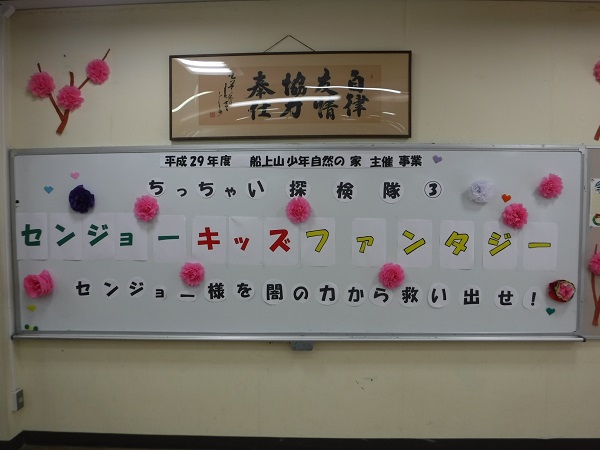 自律
友情
協力
奉仕
平成29年度 船上山少年自然の家 主催事業
ちっちゃい探検隊③
センジョーキッズファンタジー
センジョー様を闇の力から救い出せ!